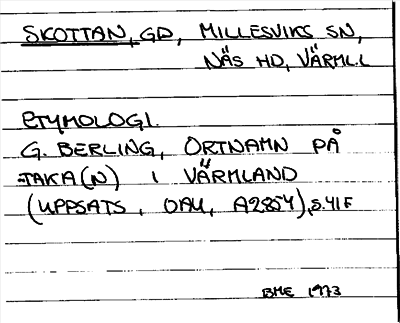 SKOTTAN, GD, MILLESVIKS SN,
NÄS HD, VÄRML.L
ETYMOLOGI.
G. BERLING, ORTNAMN PÅ
-TAKA(N) I VÄRMLAND
(UPPSATS, OAU, A2854), S.41F
BME 1973